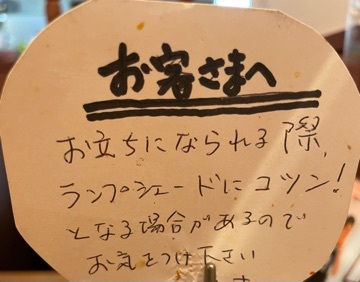 お客さまへ
お立ちになられる際、
ランプシェードにコツン!
となる場合があるので
お気をつけ下さい